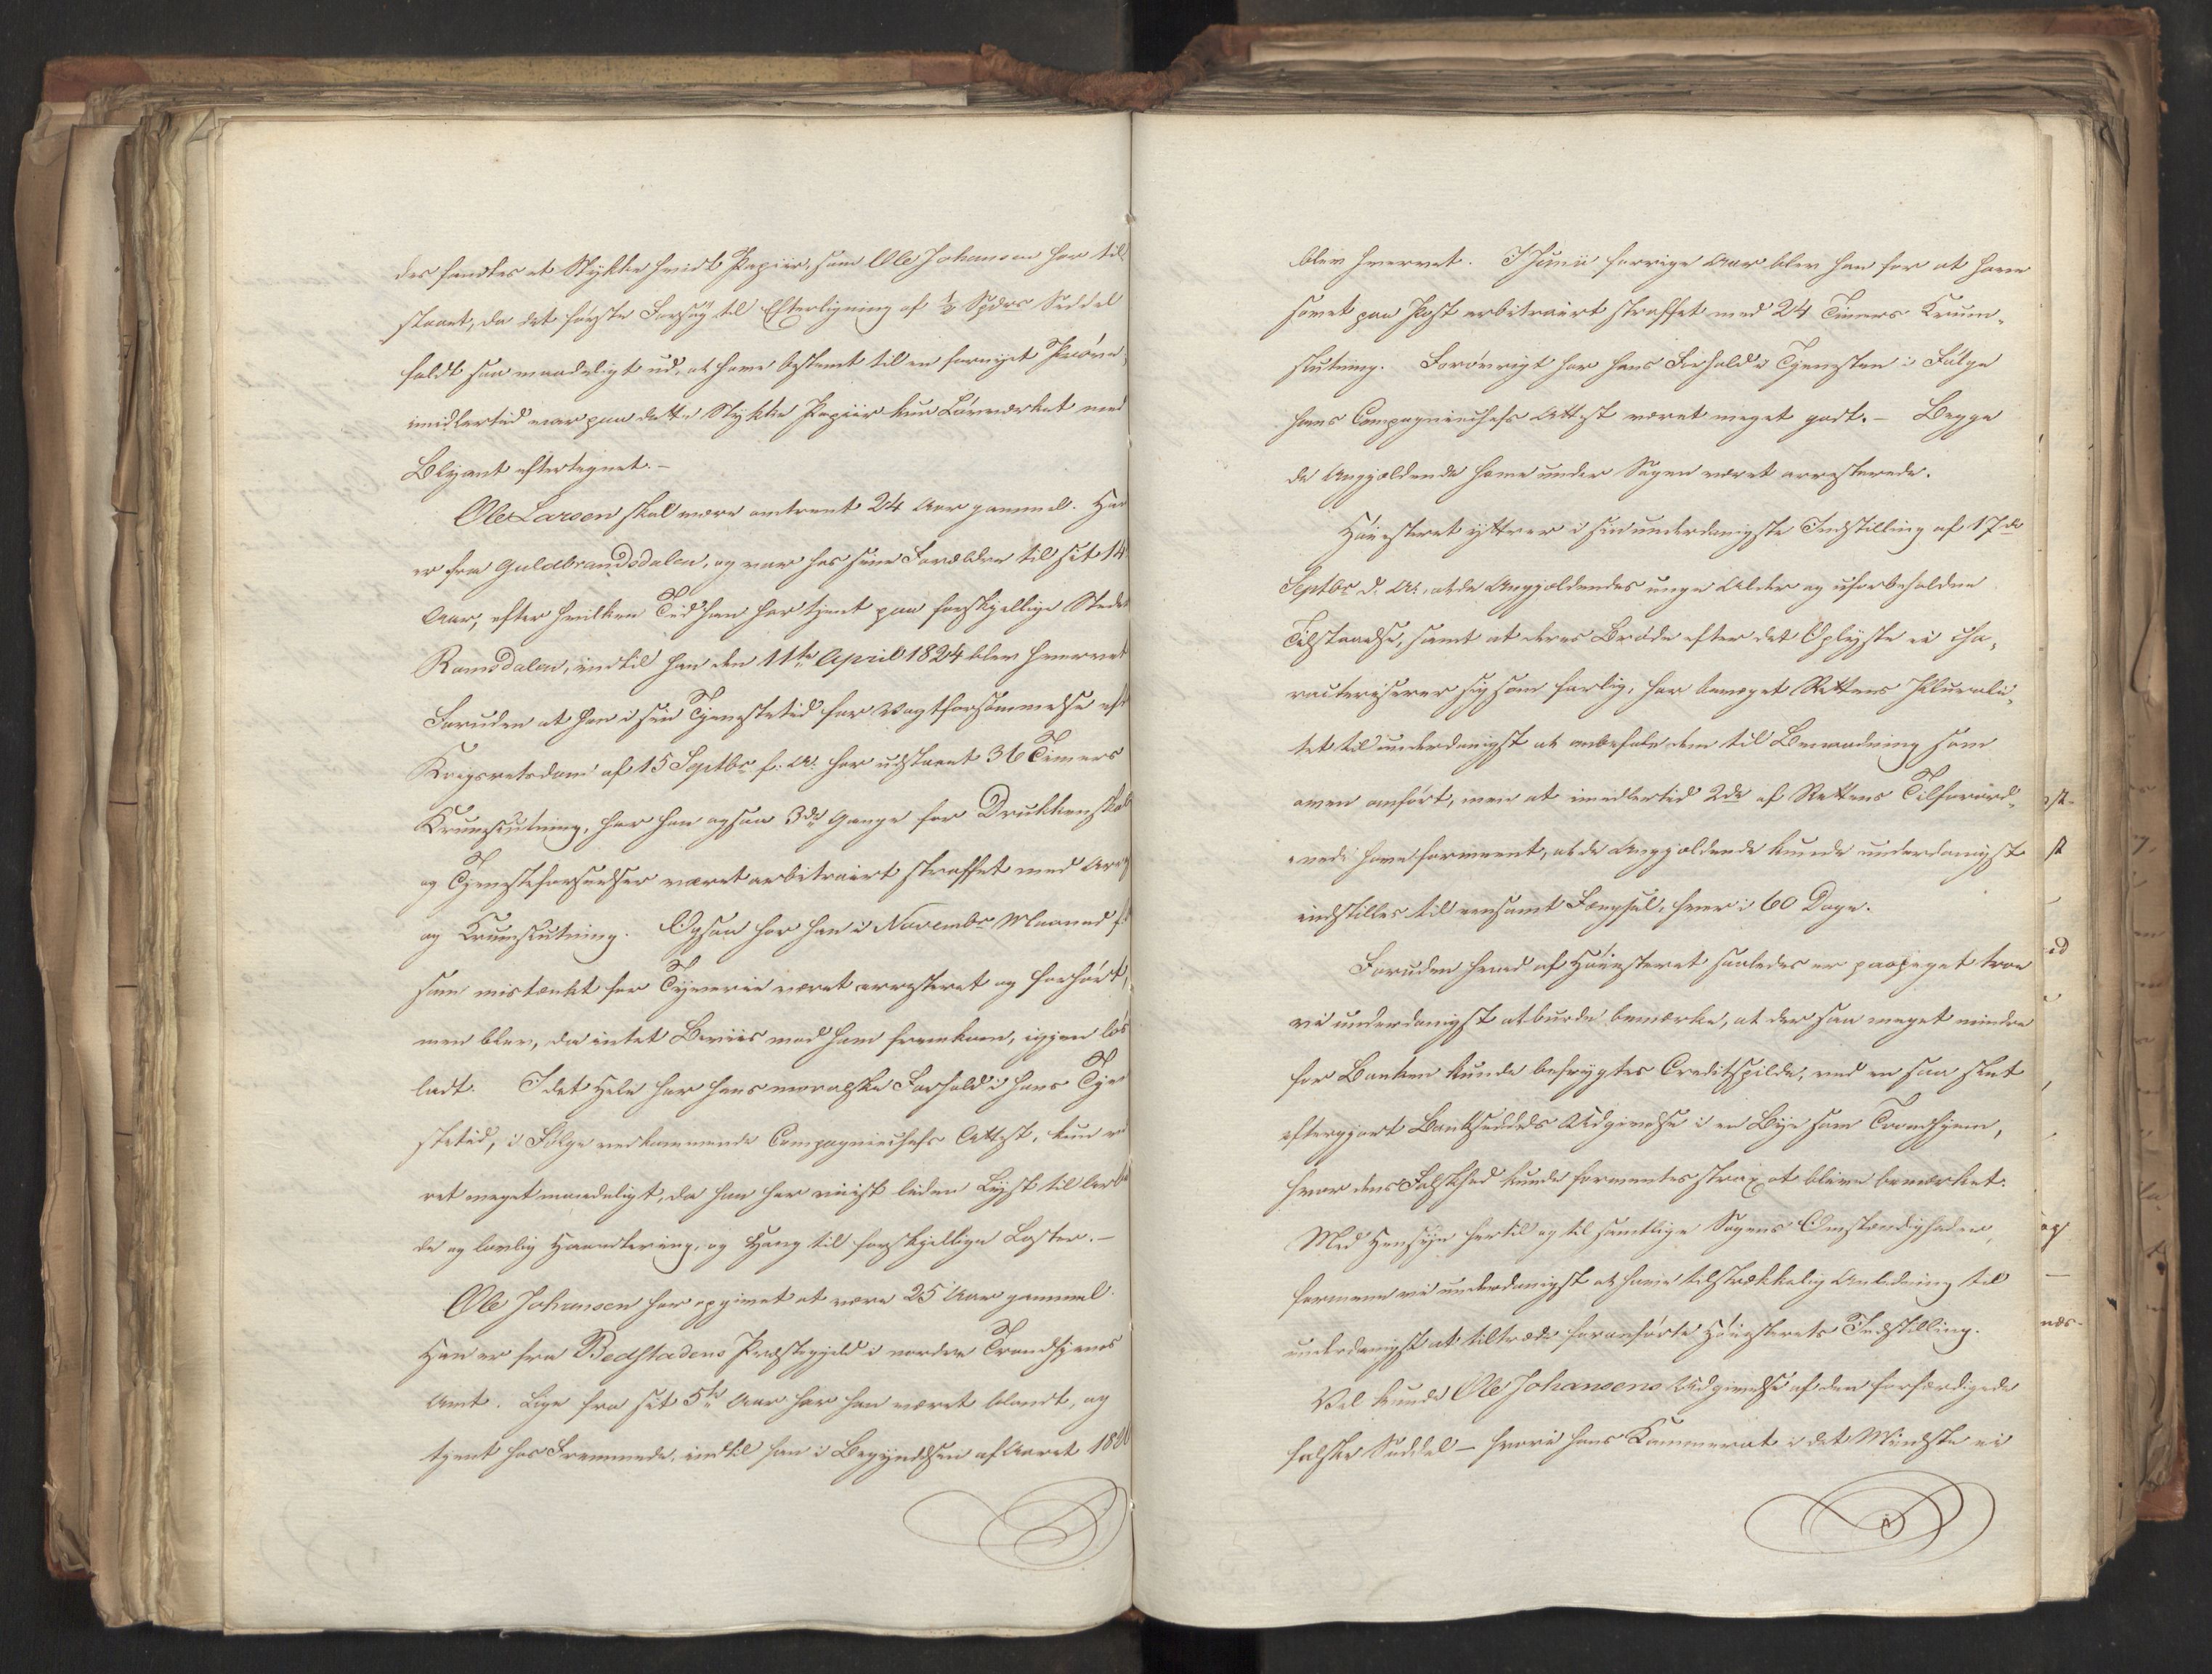 des fandtes et Stykke hvidt Papiir, som Ole Johansen har til-
staaet, da det første Forsøg til Efterligning af ½ Spdrs Seddel
faldt saa maadeligt ud, at have bestemt til en fornyet Prøve,
imidlertid var paa dette Stykke Papiir kun Løvværket med
Blyant eftertegnet.-
Ole Larsen skal være omtrent 24 Aar gammel. Han
er fra Guldbrandsdalen, og var hos sine Forældre til sit 14
Aar, efter hvilken Tid han har tjent paa forskjellige Steder
Romsdalen, indtil han den 11te April 1824 blev hvervet
Foruden at han i sin Tjenestetid for Vagtforsømmelse eft
Krigsretsdom af 15 Septbr f: A: har udstaaet 36 Timers
Krumslutning, har han ogsaa 3de Gange for Drukkenskab
og Tjenesteforseelser været arbitrairt straffet med Arr
og Krumslutning. Ogsaa har han i Novembr Maaned f:
som mistænkt for Tyverie været arresteret og forhørt,
men blev, da intet Beviis mod ham fremkom, igjen løs
ladt. I det Hele har hans moralske Forhold i hans Tje
stetid, i Følge vedkommende Compagniechefs Attest, kun væ
ret meget maadeligt, da han har viist liden Lyst til Arbe
de og lovlig Haandtering, og Hang til forskjellige Laster.-
Ole Johansen har opgivet at være 25 Aar gammel.
Han er fra Bedstadens Præstegjeld i nordre Trondhjems
Amt. Lige fra sit 5te Aar har han været blandt, og
tjent hos Fremmede, indtil han i Begyndelsen af Aaret 182
blev hvervet. I Junii forrige Aar blev han for at have
sovet paa Post arbitrairt straffet med 24 Timers Krum-
slutning. Forøvrigt har hans Forhold i Tjenesten i Følge
hans Compagniechefs Attest været meget godt.- Begge
de Angjældende have under Sagen været arresterede.
Høiesteret yttrer i sin underdanigste Indstilling af 17de
Septbr d. A:, at de Angjældendes unge Alder og uforbeholdne
Tilstaaelse, samt at deres Brøde efter det Oplyste ei cha-
racteriserer sig som farlig, har bevæget Rettens Plurali-
tet til underdanigst at anbefale dem til Benaadning som
oven anført, men at imidlertid 2de af Rettens Tilforord-
nede have formeent, at de Angjældende kunde underdanigst
indstilles til eensomt Fængsel, hver i 60 Dage.
Foruden hvad af Høiesteret saaledes er paapeget troe
vi underdanigst at burde bemærke, at der saa meget mindre
for Banken kunde befrygtes Creditspilde, ved en saa slet
eftergjort Bankseddels Udgivelse i en Bye som Trondhjem,
hvor dens Falskhed kunde formentes strax at blive bemærket.
Med Hensyn hertil og til samtlige Sagens Omstændigheder,
formene vi underdanigst at have tilstrækkelig Anledning til
underdanigst at tiltræde foranførte Høiesterets Indstilling.
Vel kunde Ole Johansens Udgivelse af den forfærdigede
falske Seddel - hvori hans Kammerat i det Mindste ei